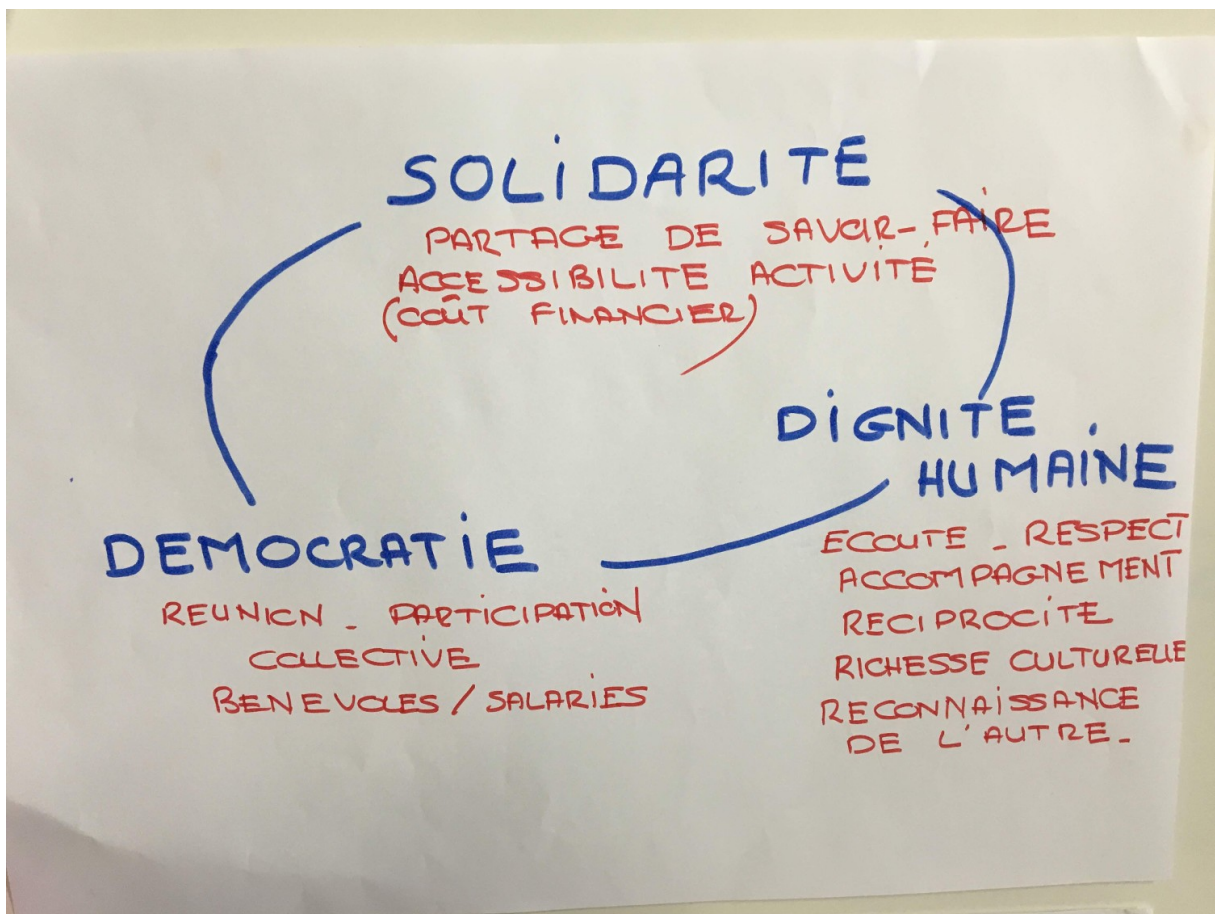 SOLIDARITE
PARTAGE DE SAVOIR-FAIRE
ACCESSIBILITÉ ACTIVITÉ
(COÛT FINANCIER)
DIGNITE
HUMAINE
ECOUTE - RESPECT
ACCOMPAGNEMENT
RECIPROCITE
RICHESSE CULTURELLE
RECONNAISSANCE
DE L'AUTRE -
DEMOCRATIE
REUNION - PARTICIPATION
COLLECTIVE
BENEVOLES / SALARIES